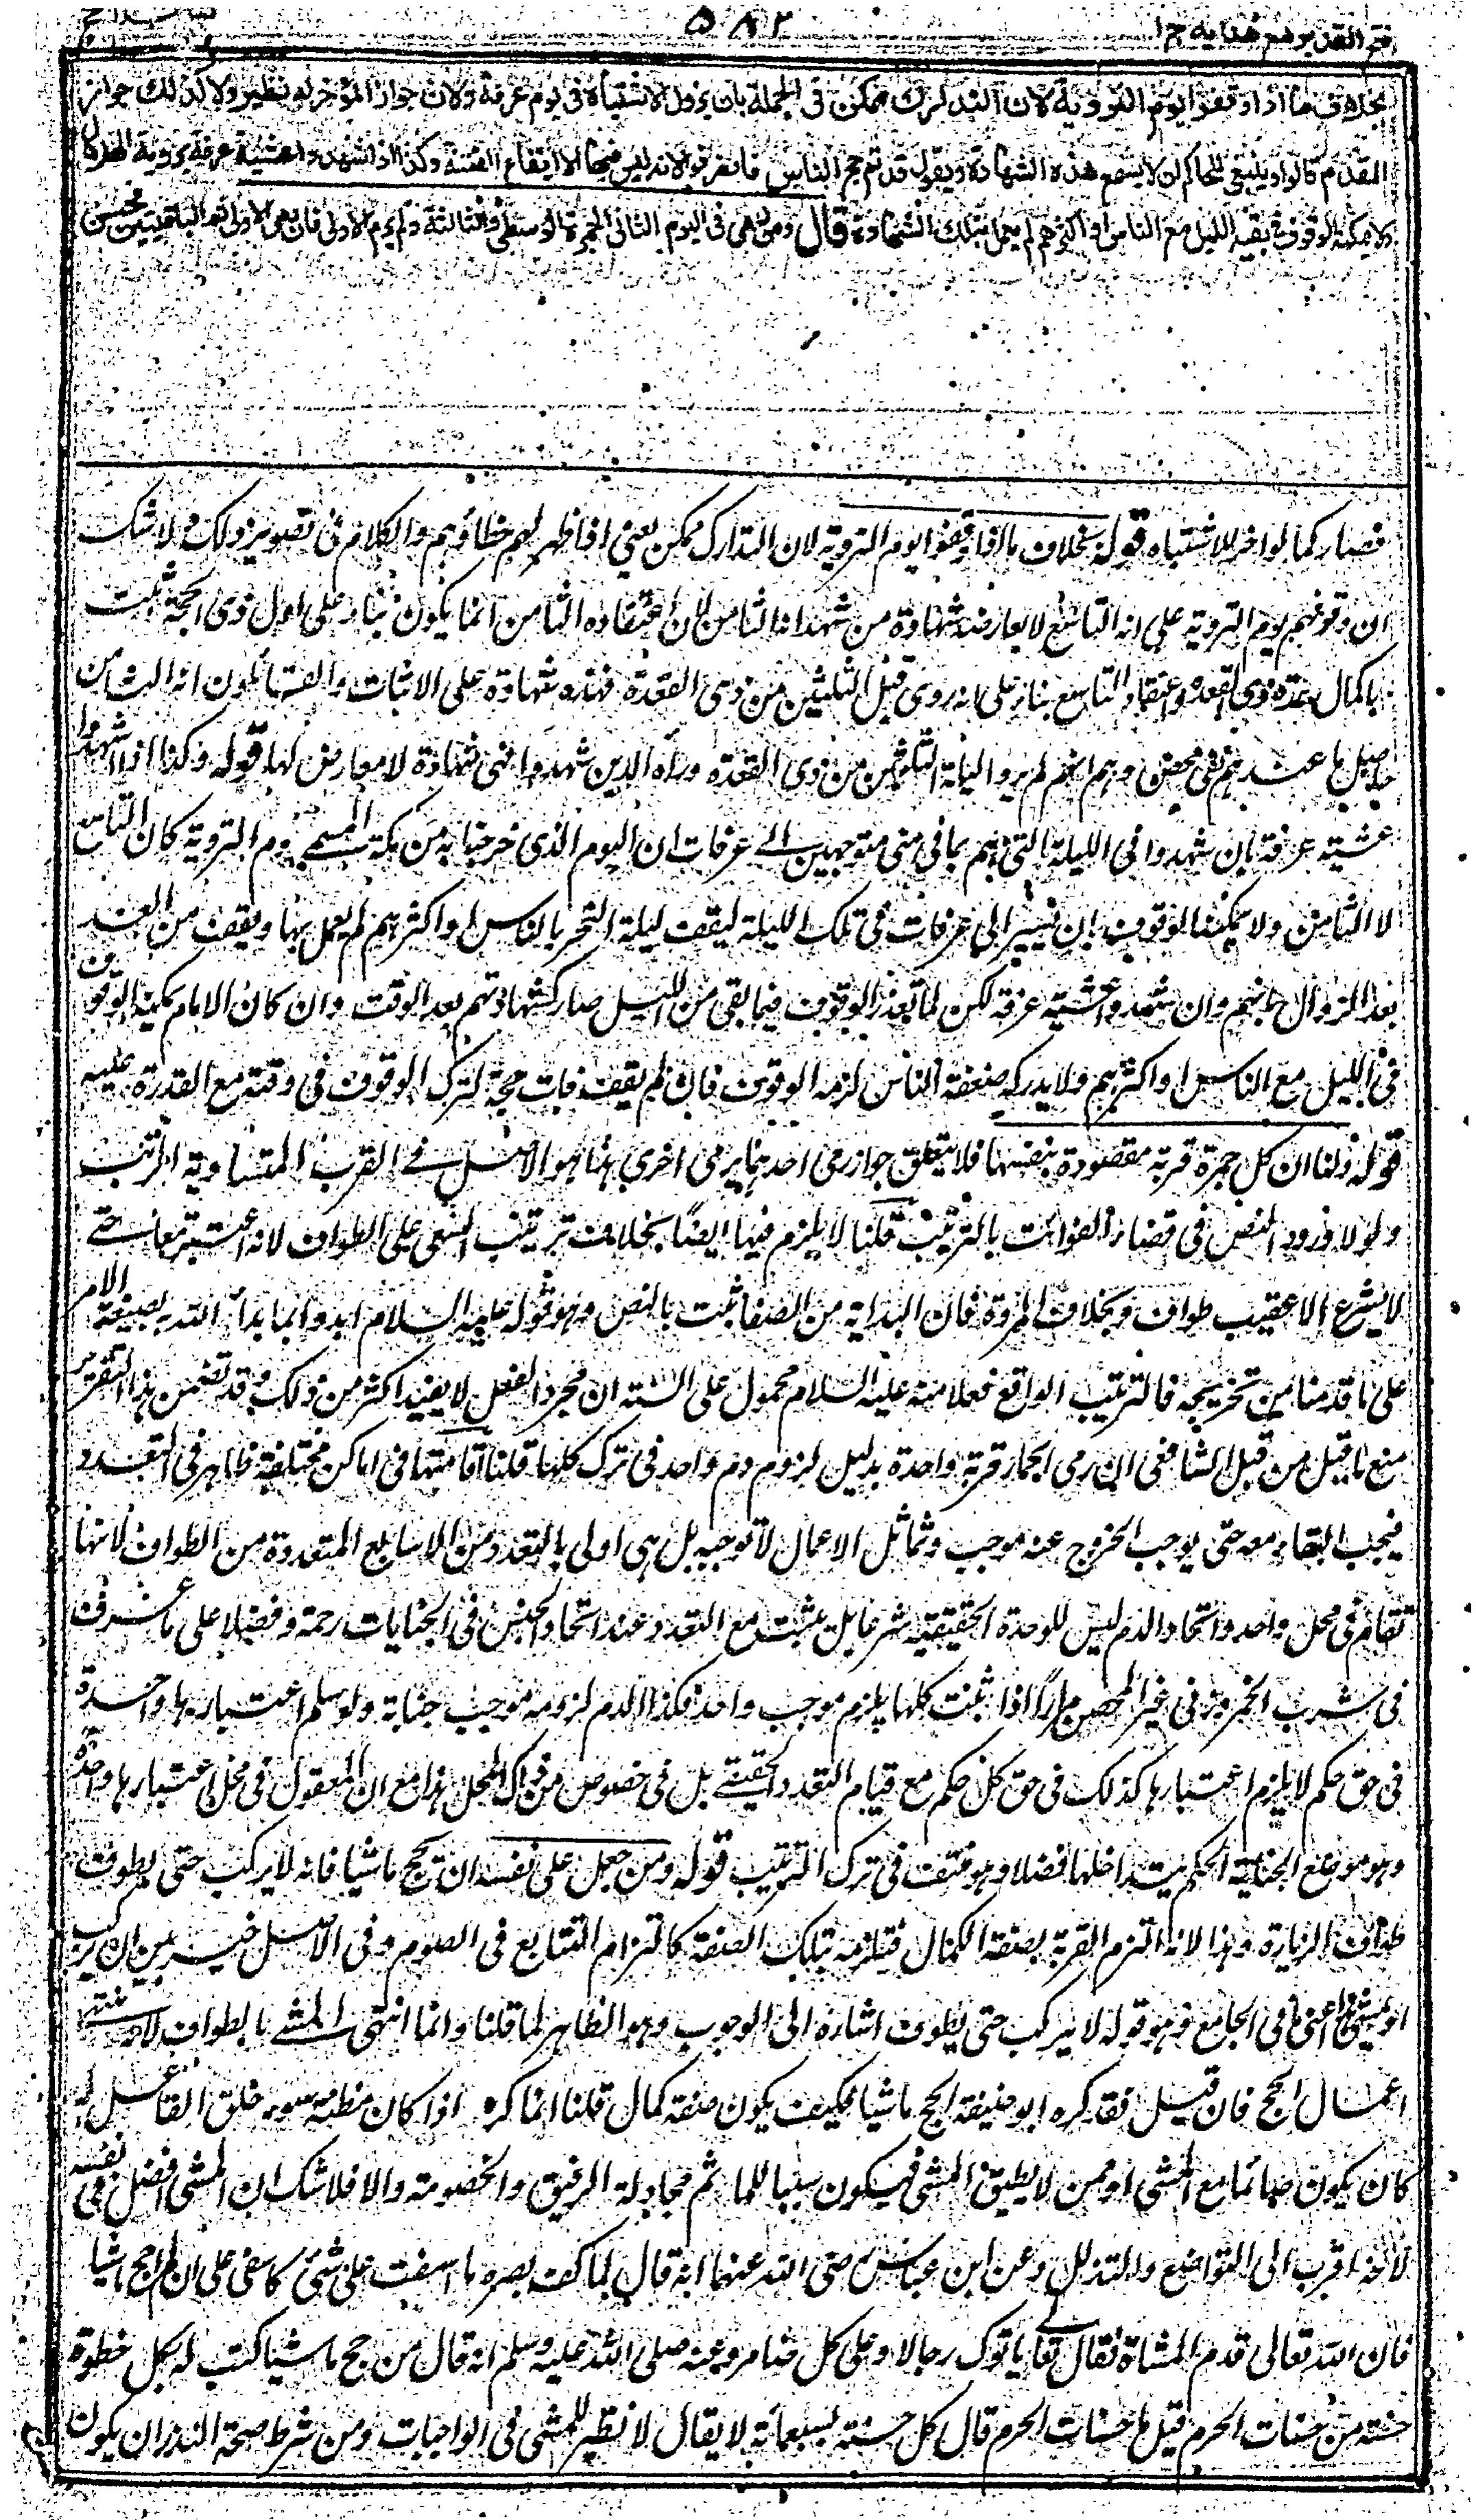 فتح القدير مع هداية ج ا
٥٨٢
بخلاف ما اذا وقفوا يوم التروية لان التدارك ممكن فى الجملة بان يزول الاشتباه فى يوم عرفة ولان جواز المؤخر له نظير ولا كذلك جواز
المقدم قالوا وينبغى للحاكم ان لا يسمع هذه الشهادة ويقول قد تم حج الناس فانصرفوا لانه ليس فيها الا ايقاع الفتنة وكذا اذا شهدوا عشية عرفة برؤية الهلال
لا يمكنه الوقوف فى بقية الليل مع الناس او اكثرهم لم يعمل بتلك الشهادة قال ومن رمى فى اليوم الثانى الجمرة الوسطى والثالثة ولم يرم الاولى فان رمى الاولى ثم الباقيتين فحسن
فصار كما لو اخر للاشتباه قوله بخلاف ما اذا وقفوا يوم التروية لان التدارك ممكن يعنى اذا ظهر لهم خطأؤهم والكلام فى تصوير ذلك ولا شك
ان وقوفهم يوم التروية على انه التاسع لا يعارضه شهادة من شهد انه الثامن لان اعتقاده الثامن انما يكون بناء على ان اول ذى الحجة ثبت
باكمال عدة ذى القعدة واعتقاد التاسع بناء على انه روى قبل الثلثين من ذى القعدة فهذه شهادة على الاثبات والقائلون انه الثامن
حاصل ما عندهم نفى محض وهم انهم لم يروا ليلة الثلاثين من ذى القعدة ورآه الذين شهدوا فهى شهادة لا معارض لها قوله وكذا اذا شهدوا
عشية عرفة بان شهدوا فى الليلة التى هم بها فى منى متوجهين الى عرفات ان اليوم الذى خرجنا به من مكة المسمى يوم التروية كان التاسع
لا الثامن ولا يمكنه الوقوف بان يسير الى عرفات فى تلك الليلة ليقف ليلة النحر بالناس او اكثرهم لم يعمل بها ويقف من الغد
بعد الزوال لانهم وان شهدوا عشية عرفة لكن لما تعذر الوقوف فيما بقى من الليل صار كشهادتهم بعد الوقت وان كان الامام يمكنه الوقوف
فى الليل مع الناس او اكثرهم ولا يدركه ضعفة الناس لزمه الوقوف فان لم يقف فات حجه لترك الوقوف فى وقته مع القدرة عليه
قوله ولنا ان كل جمرة قربة مقصودة بنفسها فلا يتعلق جواز رمى احدهما برمى اخرى هذا هو الاصل فى القرب المتساوية الرتب
ولولا ورود النص فى قضاء الفوائت بالترتيب قلنا لا يلزم فيها ايضا بخلاف ترتيب السعى على الطواف لانه اعتبر تبعا حتى
لا يشرع الا عقيب طواف وبخلاف المروة فان البداية من الصفا ثبت بالنص وهو قوله عليه السلام ابدوا بما بدأ الله به بصيغة الامر
على ما قدمنا من تخريجه فالترتيب الواقع فعلا منه عليه السلام محمول على السنة ان مجرد الفعل لا يفيد اكثر من ذلك وقد تضمن هذا التقرير
منع ما قيل من قبل الشافعى ان رمى الجمار قربة واحدة بدليل لزوم دم واحد فى ترك كلها قلنا اقامتها فى اماكن مختلفة ظاهر فى التعدد
فيجب البقاء معه حتى يوجب الخروج عنه موجب وتماثل الاعمال لا توجبه بل هى اولى بالتعدد من الاسابيع المتعددة من الطواف لانها
تقام فى محل واحد واتحاد الدم ليس للوحدة الحقيقية شرعا بل يثبت مع التعدد عند اتحاد الجنس فى الجنايات رحمة وفضلا على ما عرف
فى شرب الخمر وزنى غير المحصن مرارا اذا ثبت كلها يلزم موجب واحد فكذا الدم لزومه موجب جناية ولو سلم اعتبارها واحدة
فى حق حكم لا يلزم اعتبارها كذلك فى حق كل حكم مع قيام التعدد الحقيقى بل فى خصوص ذلك المحل هذا مع ان المعقول فى محل اعتبارها واحدة
وهو موضع الجناية الحكم بتداخلها فضلا وهو منتف فى ترك الترتيب قوله ومن جعل على نفسه ان يحج ماشيا فانه لا يركب حتى يطوف
طواف الزيارة وهذا لانه التزم القربة بصفة الكمال فتلزمه بتلك الصفة كالتزام التتابع فى الصوم وفى الاصل خيره بين ان يركب
او يمشى اعنى ما فى الجامع وهو قوله لا يركب حتى يطوف اشارة الى الوجوب وهو الظاهر لما قلنا وانما انتهى المشى بالطواف لانه منتهى
اعمال الحج فان قيل فقد كره ابو حنيفة الحج ماشيا فكيف يكون صفة كمال قلنا انما كره اذا كان مظنة سوء خلق الفاعل له
كان يكون صائما مع المشى او ممن لا يطيق المشى فيكون سببا للمأثم مجادلة الرفيق والخصومة والا فلا شك ان المشى افضل فى نفسه
لانه اقرب الى التواضع والتذلل وعن ابن عباس رضى الله عنهما انه قال لما كف بصره ما اسفت على شئ كاسفى على ان لم احج ماشيا
فان الله تعالى قدم المشاة فقال تعالى ياتوك رجالا وعلى كل ضامر وعنه صلى الله عليه وسلم انه قال من حج ماشيا كتب له بكل خطوة
حسنة من حسنات الحرم قيل ما حسنات الحرم قال كل حسنة بسبعمائة لا يقال لا نظير للمشى فى الواجبات ومن شرط صحة النذر ان يكون